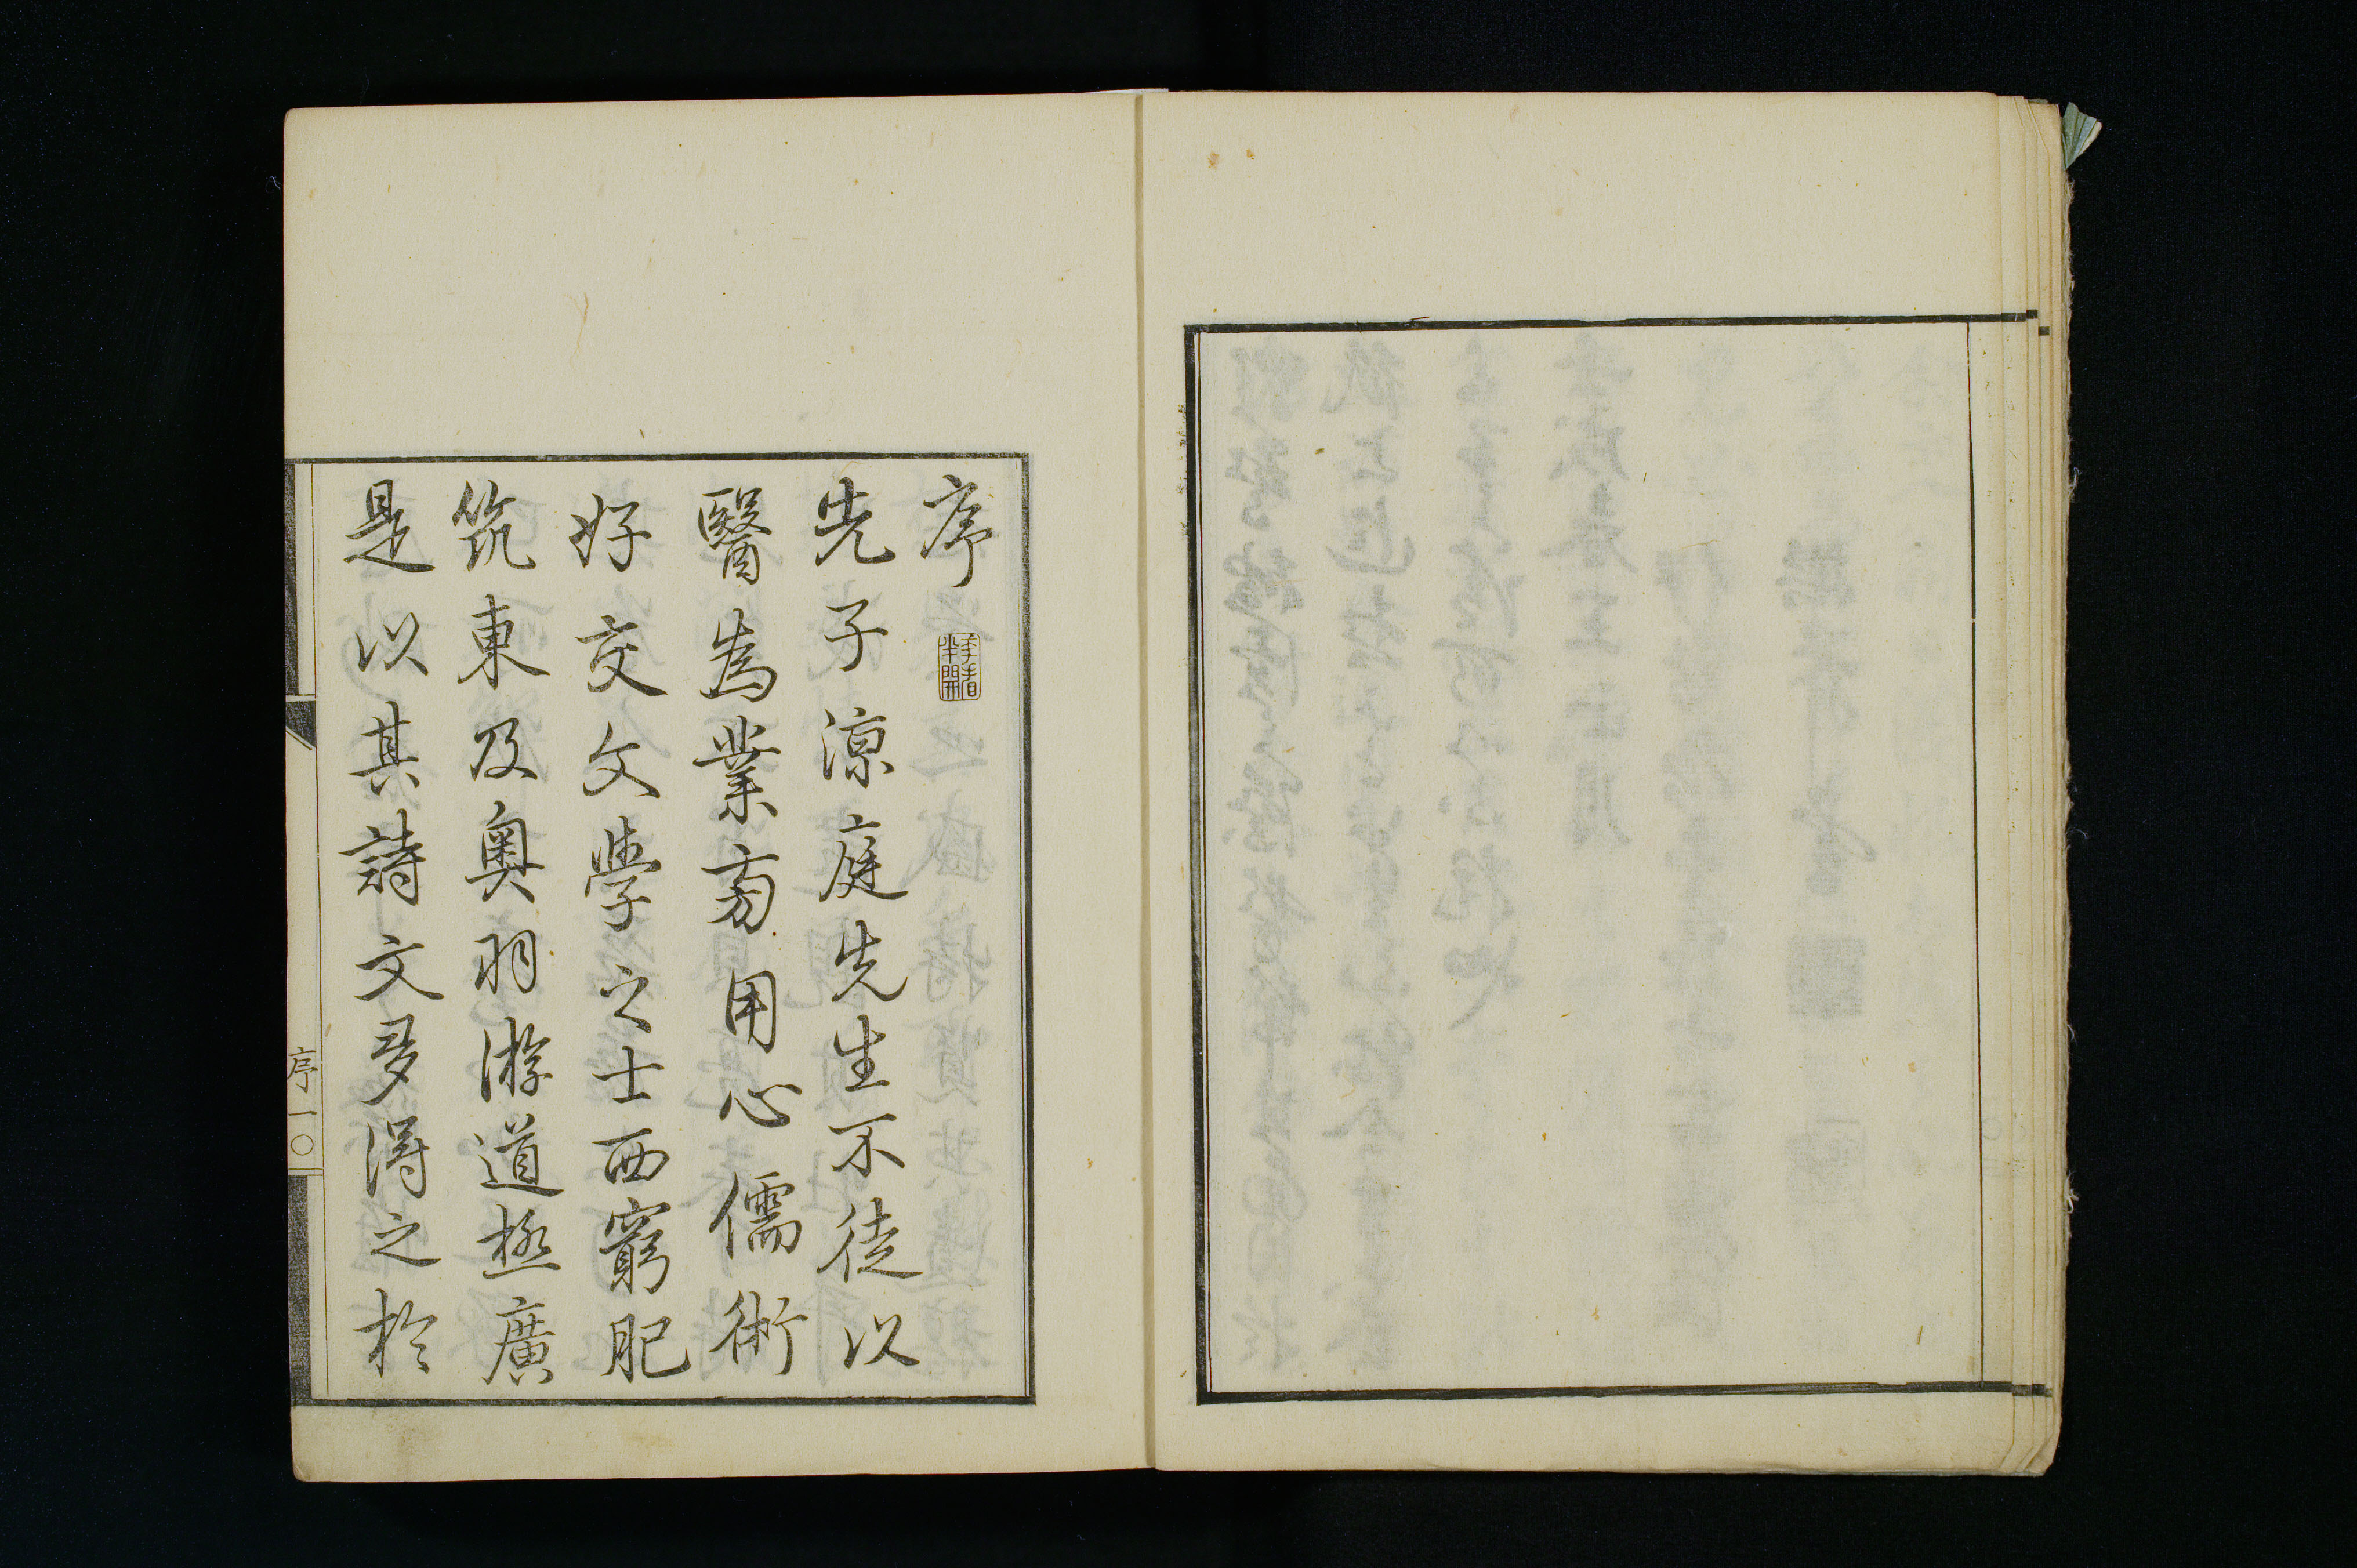 序
先子涼庭先生不徒以
醫為業旁用心儒術
好交文學之士西窮肥
筑東及奧羽游道極廣
是以其詩文多得之於
序一〇